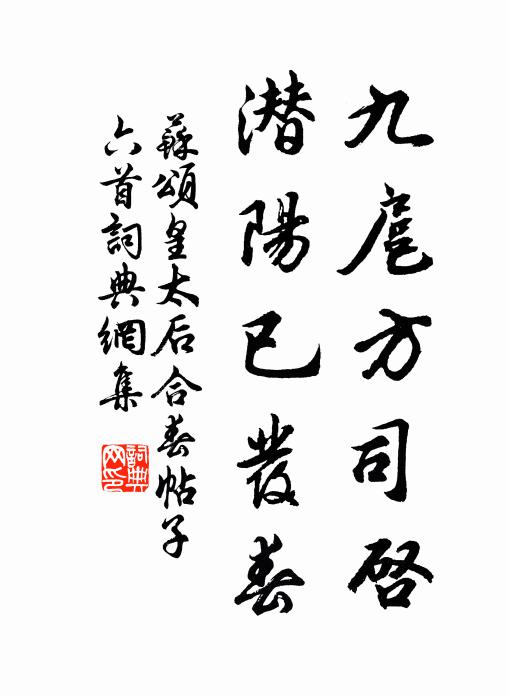 九扈方司啓
潛陽已發春
蘇頌皇太后合春帖子
六首詞典網集
詞典网印